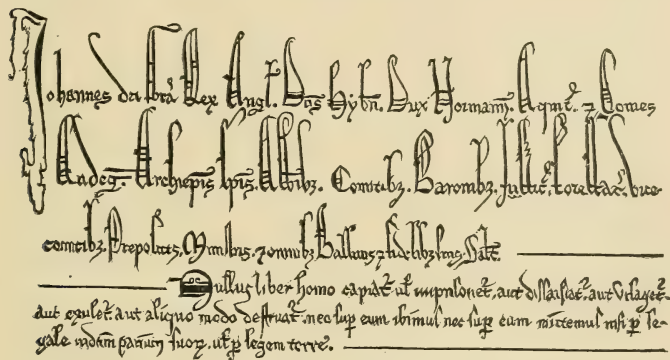 Johannes dei gr̃a Rex Angl. Dñs Hyb̃n. Dux Normann̄. Aquit̃. ⁊ Comes
Andeg̃. Archiep̃is Ep̃is. Abb̃ibꝫ. Comitibꝫ. Baronibꝫ. Justic̃. Forestar̃. vice-
comitibꝫ. Prepositis. Ministris. ⁊ omnibꝫ Ballivis ⁊ fidelibꝫ suis. Salt̃.
Nullus liber homo capiat̃ ul̃ imp̃sonet̃. aut dissaisiat̃. aut Utlaget̃.
aut exulet̃. aut aliquo modo destruat̃. nec sup̃ eum ibimus nec sup̃ eum mittemus nisi p̃ le-
gale iudiciũ parium suoꝝ. ul̃ p̃ legem terre.